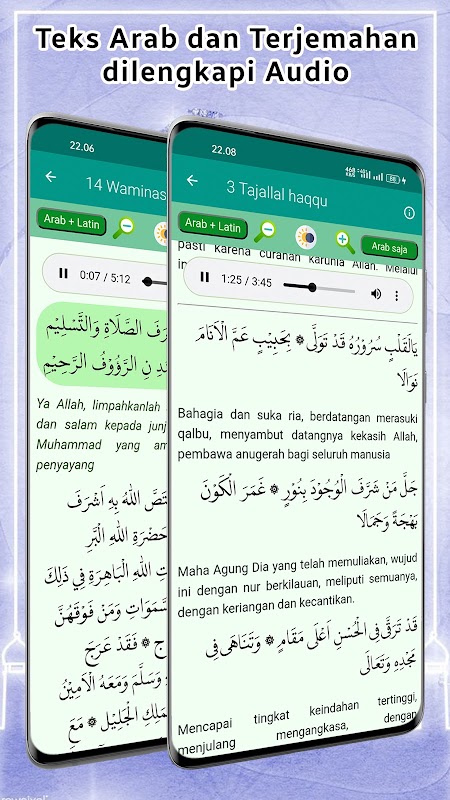 Teks Arab dan Terjemahan
dilengkapi Audio
22.06
14 Waminas
Arab + Latin
0:07 / 5:12
رَفَ الصَّلَاةِ وَالتَّسْلِيْمِ
نِ الرَّؤُوْفِ الرَّحِيْمِ
Ya Allah, limpahkanlah
dan salam kepada junj
Muhammad yang am
penyayang
تَصَّ اللهُ بِهِ اَشْرَفَ
حَضْرَةِ اللهِ الْبَرِّ
تِ اللهِ الْبَاهِرَةِ فِيْ ذٰلِكَ
سَّمَوَاتِ وَمَنْ فَوْقَهُنَّ
۞ فَقَدْ عَرَجَ
وَسَلَّمَ وَمَعَهُ الْاَمِيْنُ
مَلِكِ الْجَلِيْلِ ۞ مَعَ
22.08
468
KB/S
88
3 Tajallal haqqu
Arab + Latin
Arab saja
pasti karena curahan karunia Allah. Melalui
1:25 / 3:45
يَالَقَلْبٍ سُرُوْرُهُ قَدْ تَوَلَّى ۞ بِحَبِيْبٍ عَمَّ الْاَنَامَ
نَوَالَا
Bahagia dan suka ria, berdatangan merasuki
qalbu, menyambut datangnya kekasih Allah,
pembawa anugerah bagi seluruh manusia
جَلَّ مَنْ شَرَّفَ الْوُجُوْدَ بِنُوْرٍ ۞ غَمَرَ الْكَوْنَ
بَهْجَةً وَجَمَالَا
Maha Agung Dia yang telah memuliakan, wujud
ini dengan nur berkilauan, meliputi semuanya,
dengan keriangan dan kecantikan.
قَدْ تَرَقَّى فِى الْحُسْنِ اَعْلَى مَقَامٍ ۞ وَتَنَاهَى فِى
مَجْدِهِ وَتَعَالَى
Mencapai tingkat keindahan tertinggi,
menjulang mengangkasa, dengan